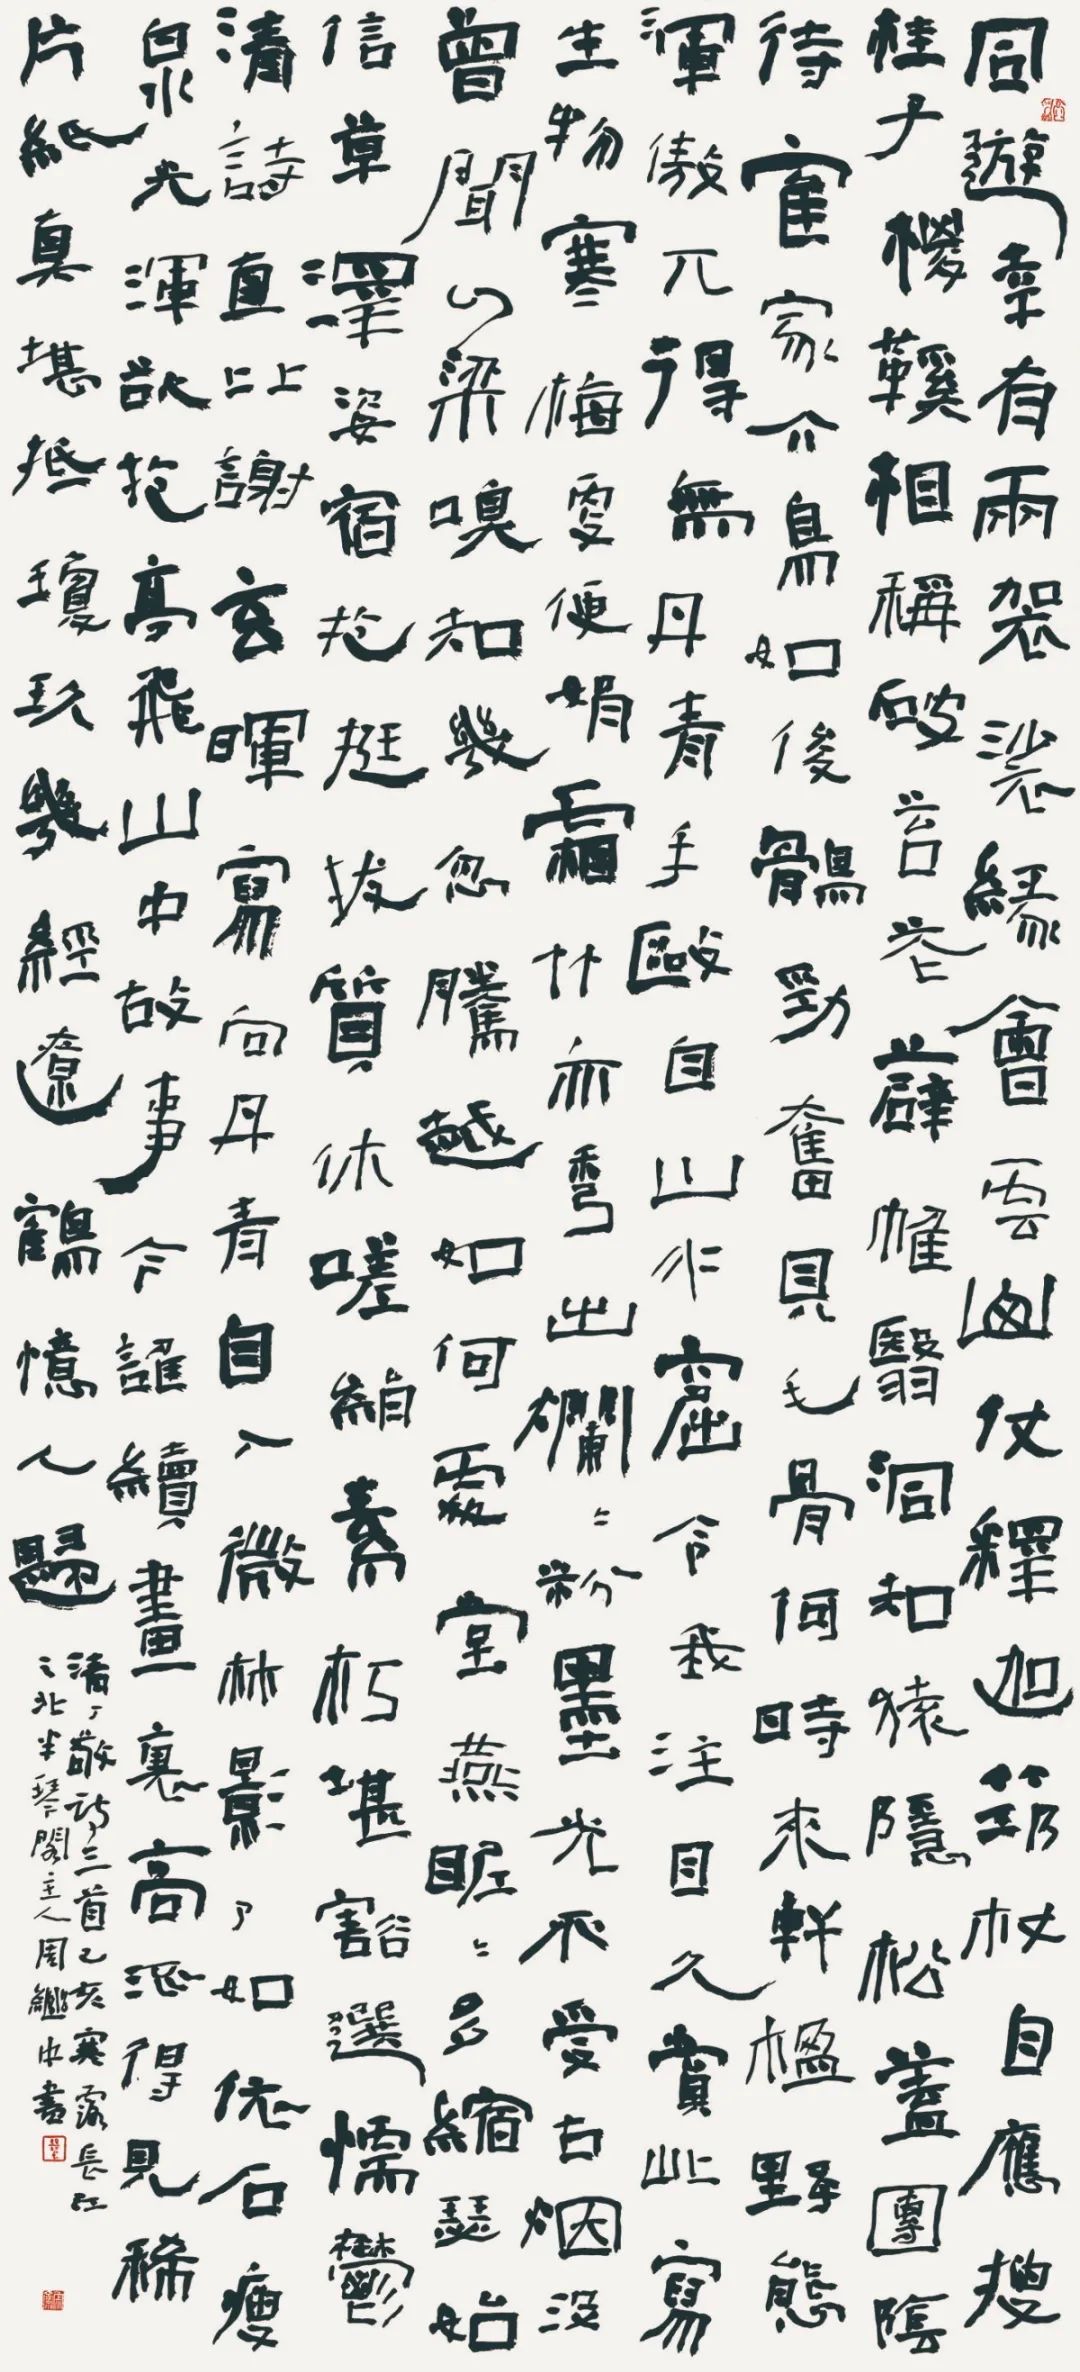 同遊幸有兩袈裟緣會雲幽仗釋迦筇杖自應搜
桂尹椶鞵相稱破苔花薜帷翳洞知猿隱松蓋團陰
待寉家介鳥如後鶻勁奮見毛骨何時來軒楹野態
渾傲兀得無丹青手毆自山水窟令我注目久賞此寫
生物寒梅處便娟霜竹亦彎出爛〻粉墨光不受古烟沒
曾聞山梁嗅知幾忽騰越如何處堂燕眤〻多縮瑟始
信草澤姿宿抱挺拔質休嗟絹素朽堪豁選懦鬱
清詩直比謝玄暉寫向丹青自入微林影了如依石瘦
泉光渾欲抱亭飛山中故事今誰續畫裏高深得見稀
片紙真堪抵瓊玖幾經遼鶴憶人歸
清丁敬詩三首乙亥寒露長江
之北半琴閣主人周繼中書